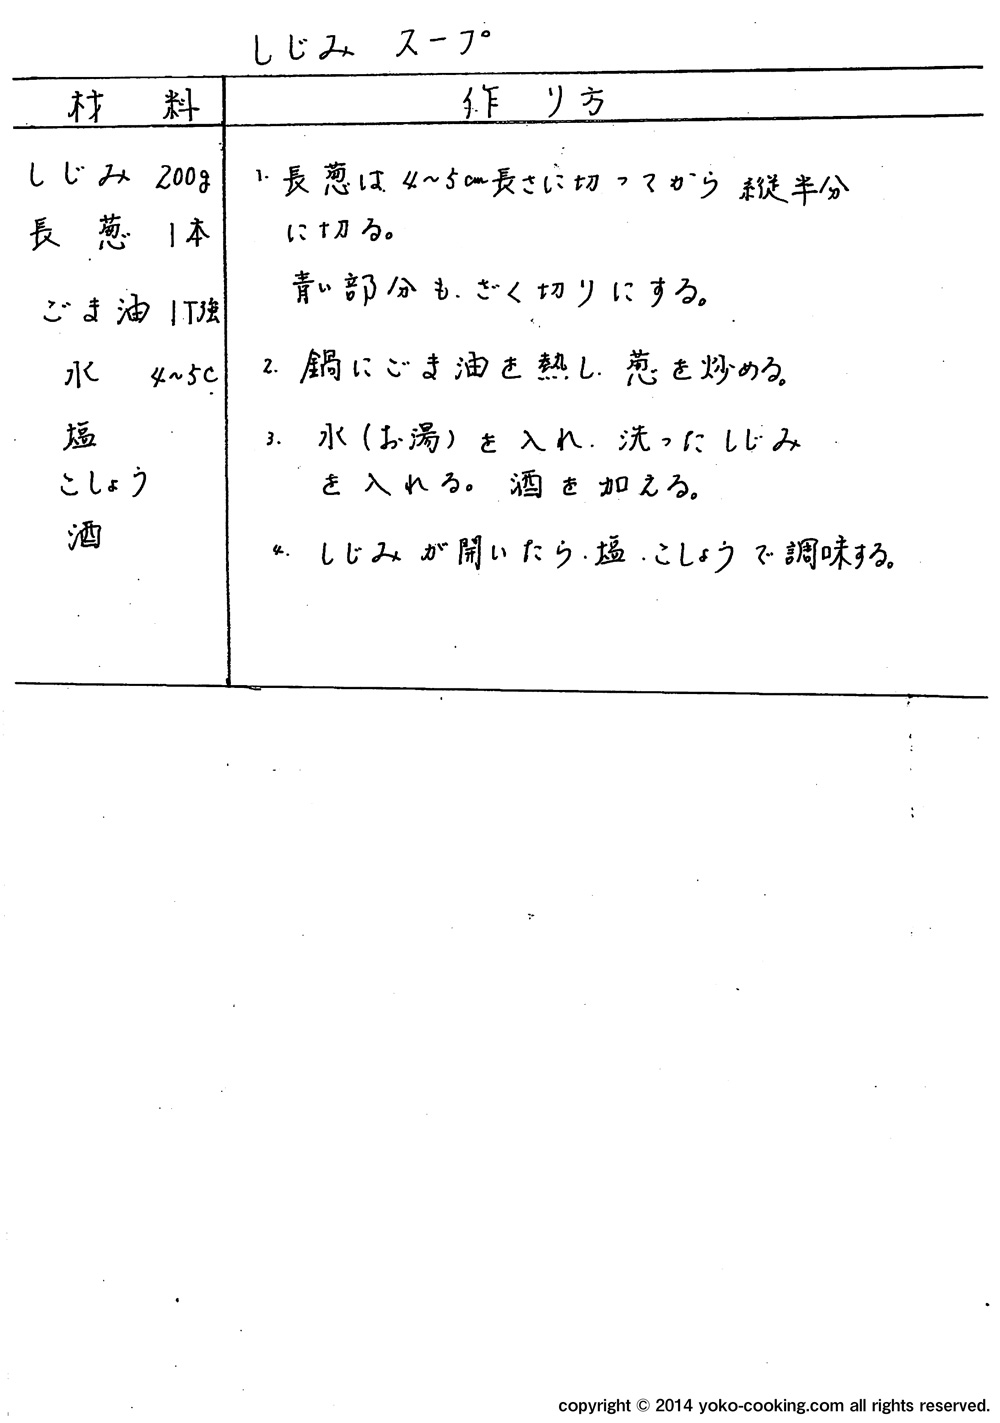 しじみ スープ
材 料
作 り 方
しじみ 200g
長 葱 1本
ごま油 1T強
水 4~5C
塩
こしょう
酒
1. 長葱は 4~5cm長さに切ってから 縦半分
に切る。
青い部分も、ざく切りにする。
2. 鍋にごま油を熱し、葱を炒める。
3. 水(お湯)を入れ、洗ったしじみ
を入れる。酒を加える。
4. しじみが開いたら、塩、こしょうで調味する。
copyright © 2014 yoko-cooking.com all rights reserved.